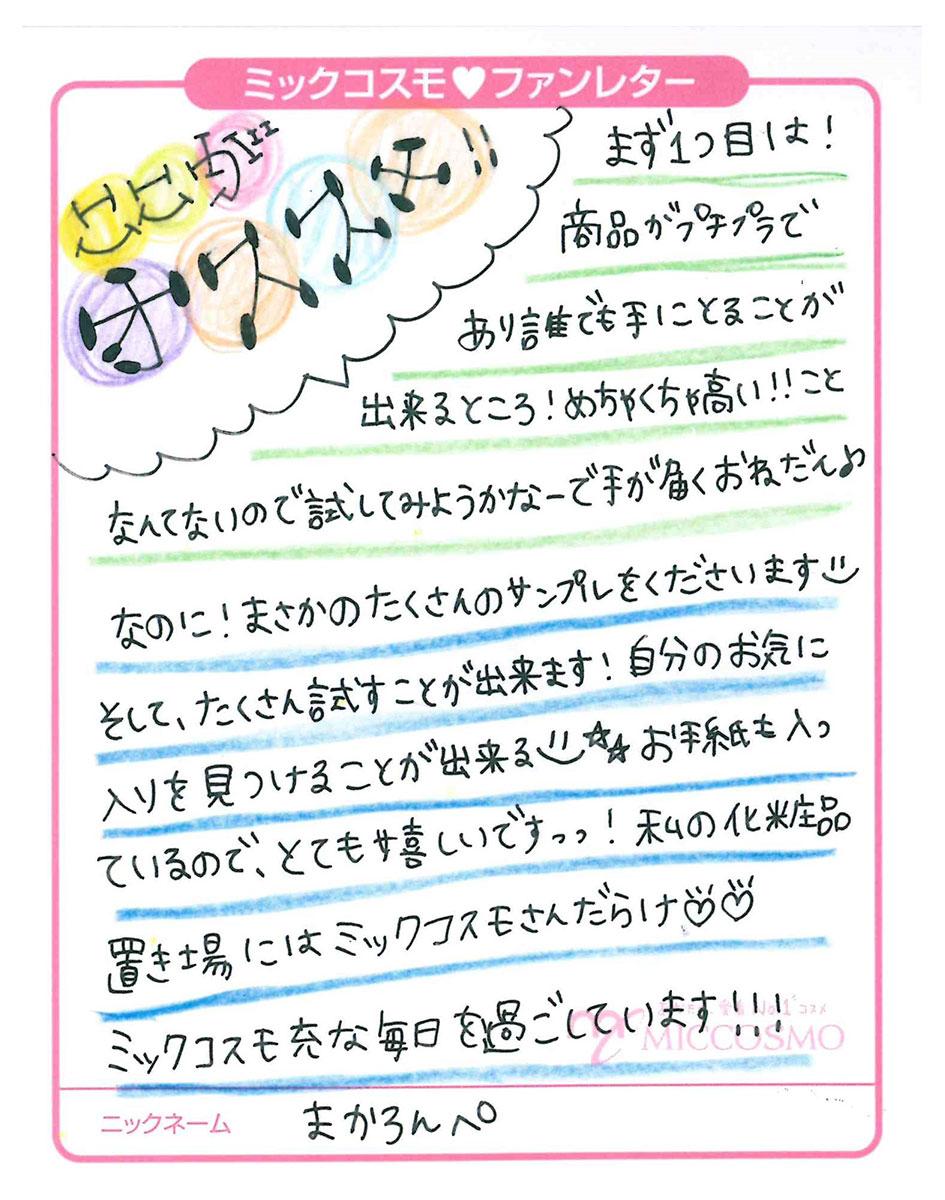 ミックコスモ♥ファンレター
ここが
オススメ!!
まず1つ目は!
商品がプチプラで
あり誰でも手にとることが
出来るところ!めちゃくちゃ高い!!こと
なんてないので試してみようかなーで手が届くおねだん♪
なのに!まさかのたくさんのサンプルをくださいます
そして、たくさん試すことが出来ます!自分のお気に
入りを見つけることが出来る☆☆お手紙も入っ
ているので、とても嬉しいですっっ!私の化粧品
置き場にはミックコスモさんだらけ♡♡
ミックコスモ充な毎日を過ごしています!!!
No.1コスメ
MICCOSMO
ニックネーム まかろんぺ